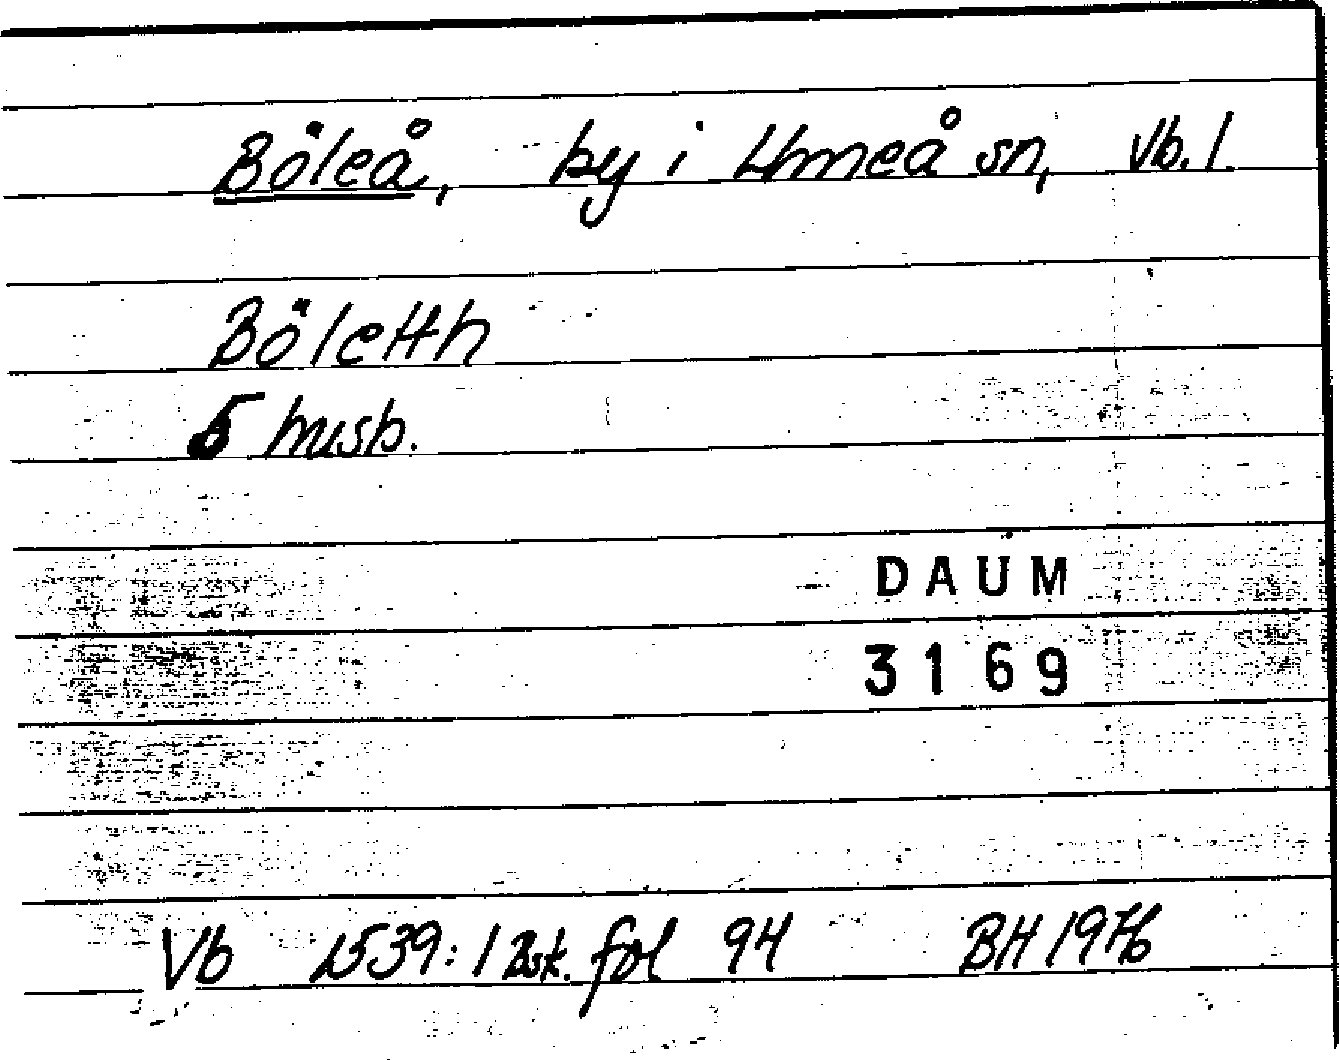 Böleå, by i Umeå sn, Vb. l.
Böletth
5 husb.
DAUM
3169
Vb 1539:1 Bsk. fol 94 BH 1976